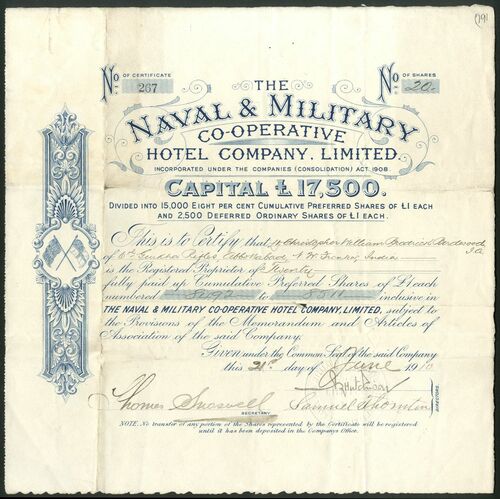 No. OF CERTIFICATE 267
No. OF SHARES 20
THE
NAVAL & MILITARY
CO-OPERATIVE
HOTEL COMPANY, LIMITED.
INCORPORATED UNDER THE COMPANIES (CONSOLIDATION) ACT 1908
CAPITAL £17,500.
DIVIDED INTO 15,000 EIGHT PER CENT CUMULATIVE PREFERRED SHARES OF £1 EACH
AND 2,500 DEFERRED ORDINARY SHARES OF £1 EACH.
This is to Certify that Christopher William
of Rifles, Abbottabad N.W. Frontier, India
is the Registered Proprietor of Twenty
fully paid up Cumulative Preferred Shares of £1 each
numbered to inclusive in
THE NAVAL & MILITARY CO-OPERATIVE HOTEL COMPANY, LIMITED, subject to
the Provisions of the Memorandum and Articles of
Association of the said Company.
Given under the Common Seal of the said Company
this 21st day of June 1910
Thomas
Samuel Thornton
SECRETARY
DIRECTORS
NOTE. No transfer of any portion of the Shares represented by the Certificate will be registered
until it has been deposited in the Companys Office.